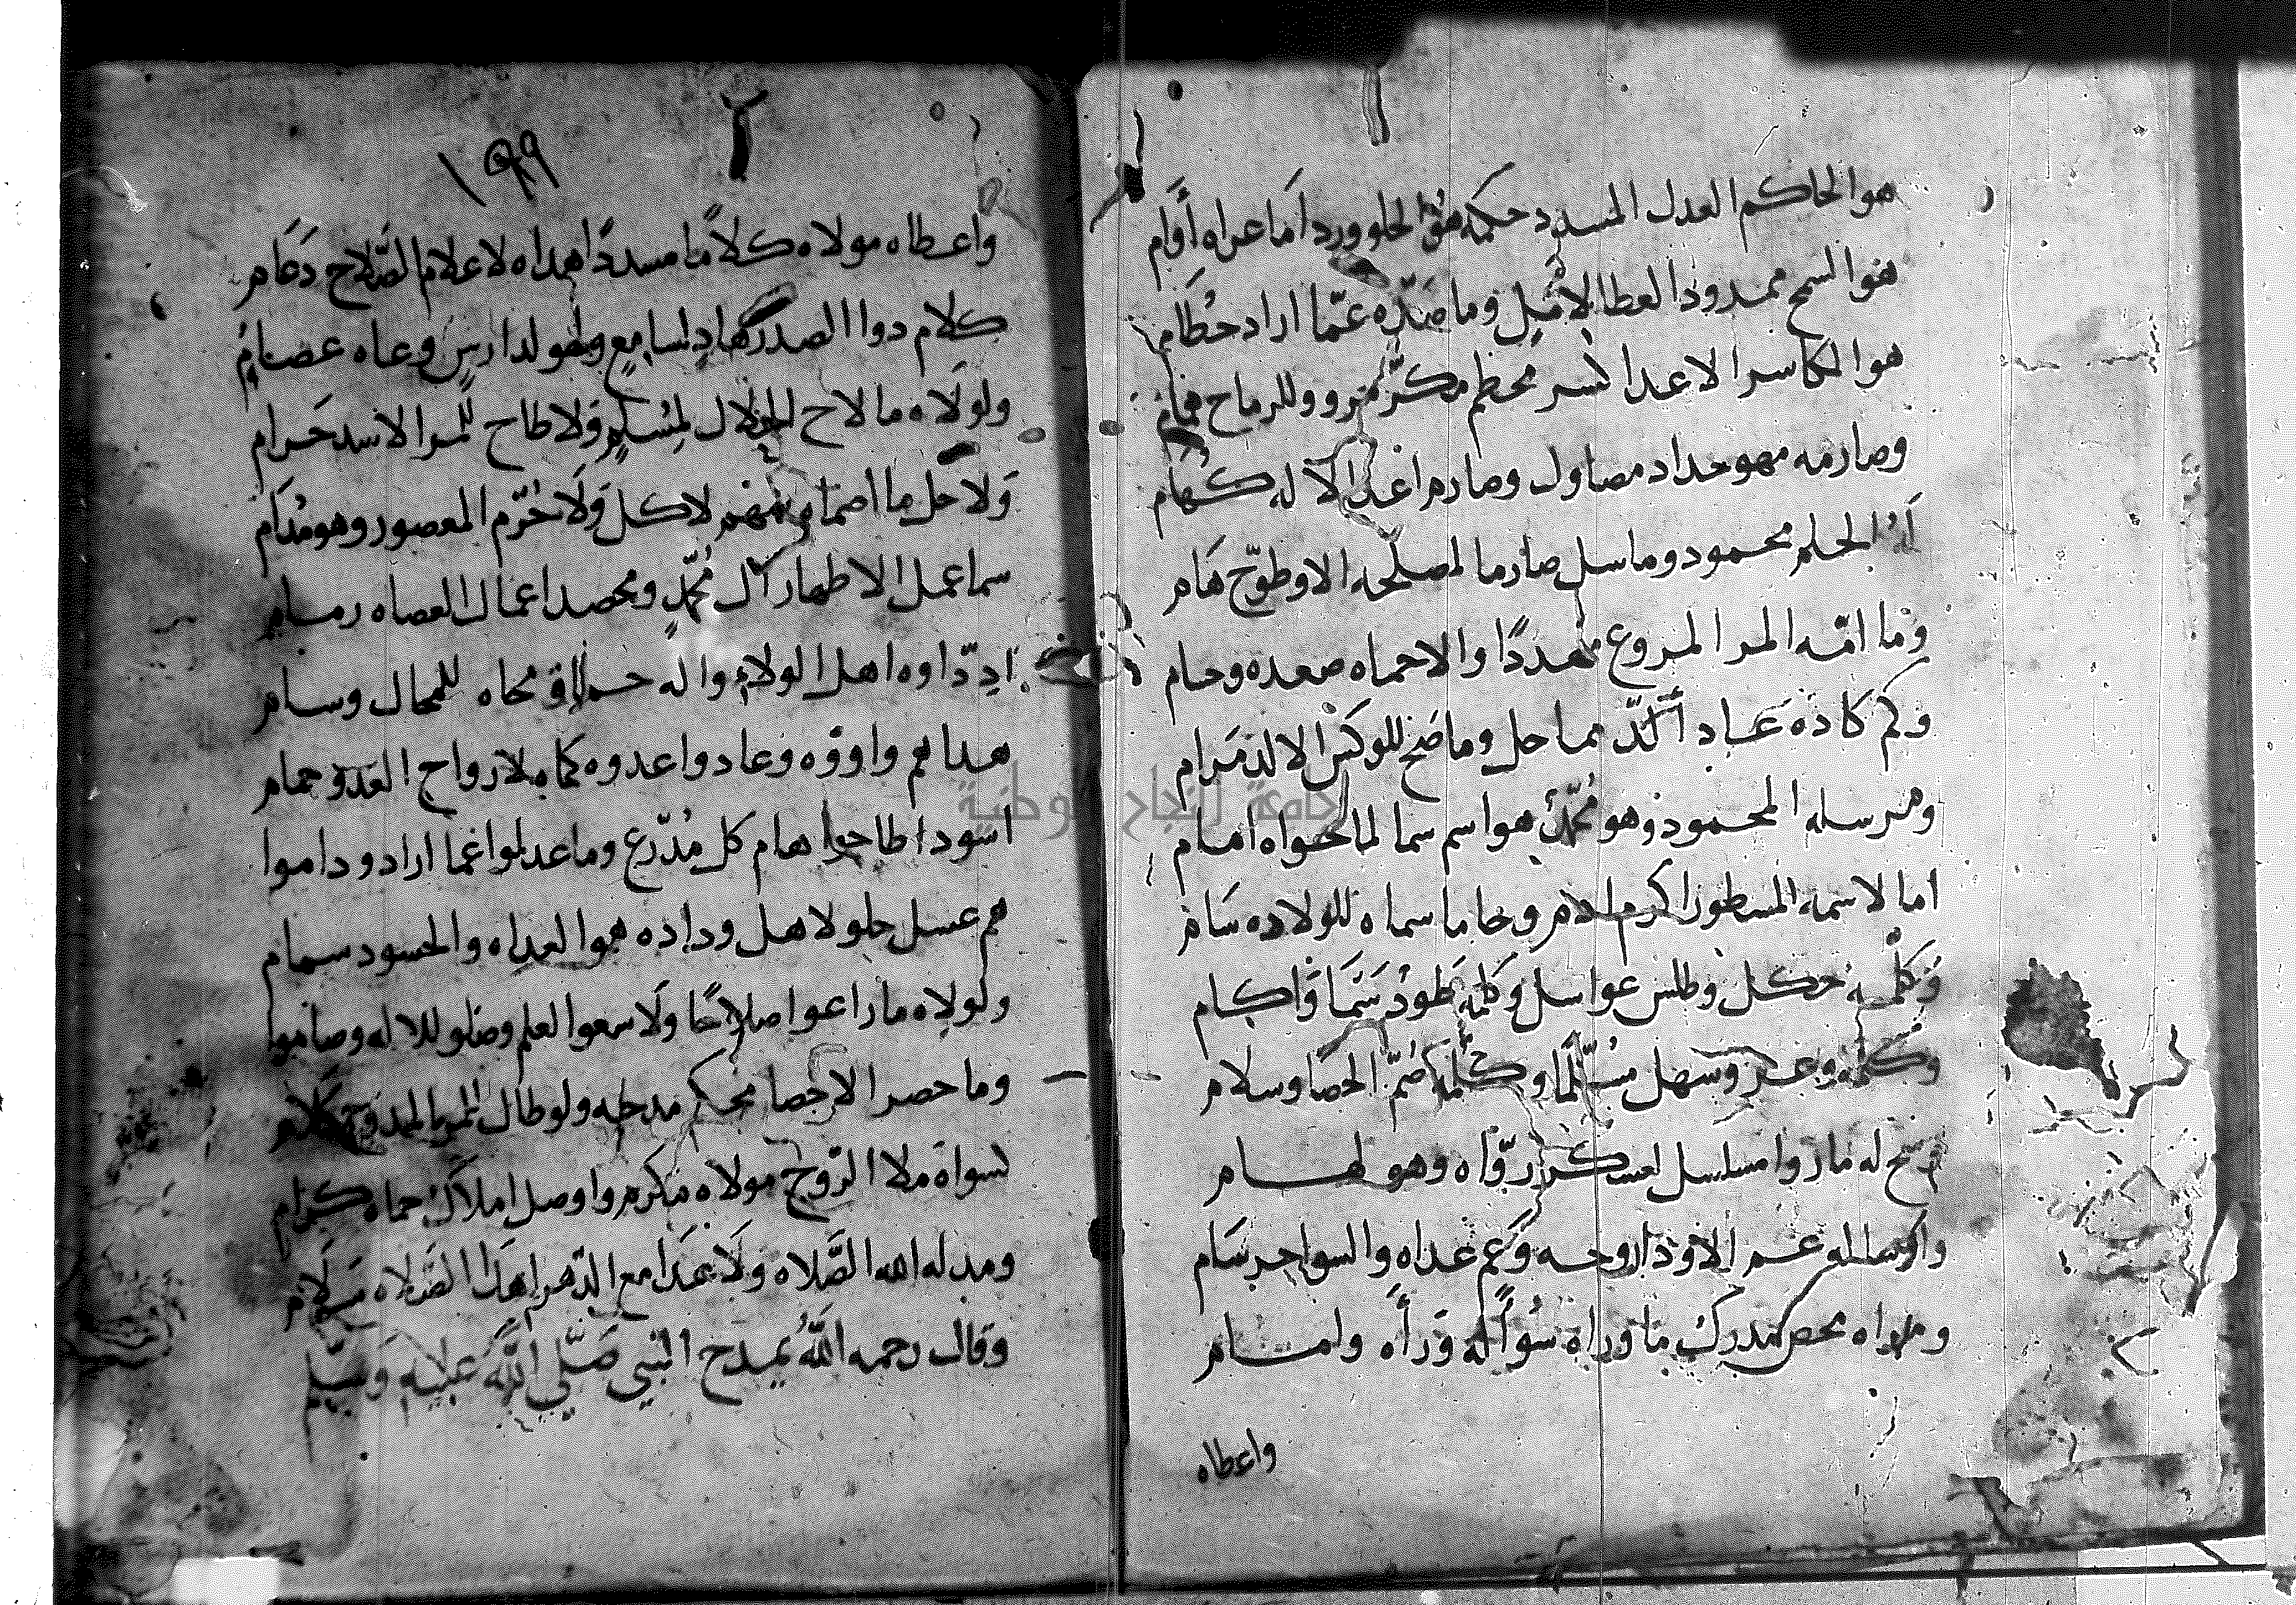 هو الحاكم العدل المسدد حكمه هو الحلو ورد اما عراه أوام
هو السمح ممدود العطا لامل وما صده عما اراد حطام
هو الكاسر الاعدا لسر محطم مكر وللرماح
وصارمه مهو حداد مصاول وصارم اعدا الاله كهام
الحلم محمود وما سل صارما لمصلحه الا وطوح هام
وما امه المرا المروع مهددا والا حماه صعده وحام
وكم كاده عاد ألد مماحل وما صح للوكس الالد مرام
ومرسله المحمود وهو محمد هو اسم سما لما حواه امام
اما لاسمه المسطور اكرم لام وحا ما سماه للولاده سام
وكلمه حكل وطلس عواسل وكلمه طود سما واكام
وكلمه وعر وسهل مسلما وكلمه صم الحصا وسلام
وسح له ما روا مسلسل لعسكر رواه وهو لهام
واكمل له عمر الاود اروحه وعم عداه والسواحر سام
ومراه محص مدرك ما وراه سوا له وراه وامام
واعطاه
١٩٩
واعطاه مولاه كلاما مسددا هداه لاعلام الصلاح دعام
كلام دوا الصدر هاد لسامع وطو لدارس وعاه عصام
ولولاه ما لاح الحلال لمسلم ولا طاح للمرا الاسد حرام
ولا حل ما اصماه سهم لاكل ولا حرم المعصور وهو مدام
سما عمل الاطهار آل محمد ومحصد اعمال العصاه رسام
اوداوه اهل الولاء واله حماق محاه للمحال وسام
هداهم واووه وعادوا عدوه كماه لارواح العدو حمام
اسود اطاحوا هام كل مدرع وما عدلوا عما اراد وداموا
هم عسل حلو لاهل وداده هموا لعداه والحسود سمام
ولولاه ما راعوا صلاحا ولا سعوا لعلم وصلوا للاله وصاموا
وما حصر الاحصا محكم مدحه ولو طال للمرا المدوح كلام
لسواه ملا الروح مولاه مكرم واوصل املاك حماه كرام
ومد له الله الصلاه ولا عدا مع الدهر اهداء الصلاه سلام
وقال رحمه الله يمدح النبي صلي الله عليه وسلم
جامعة النجاح الوطنية